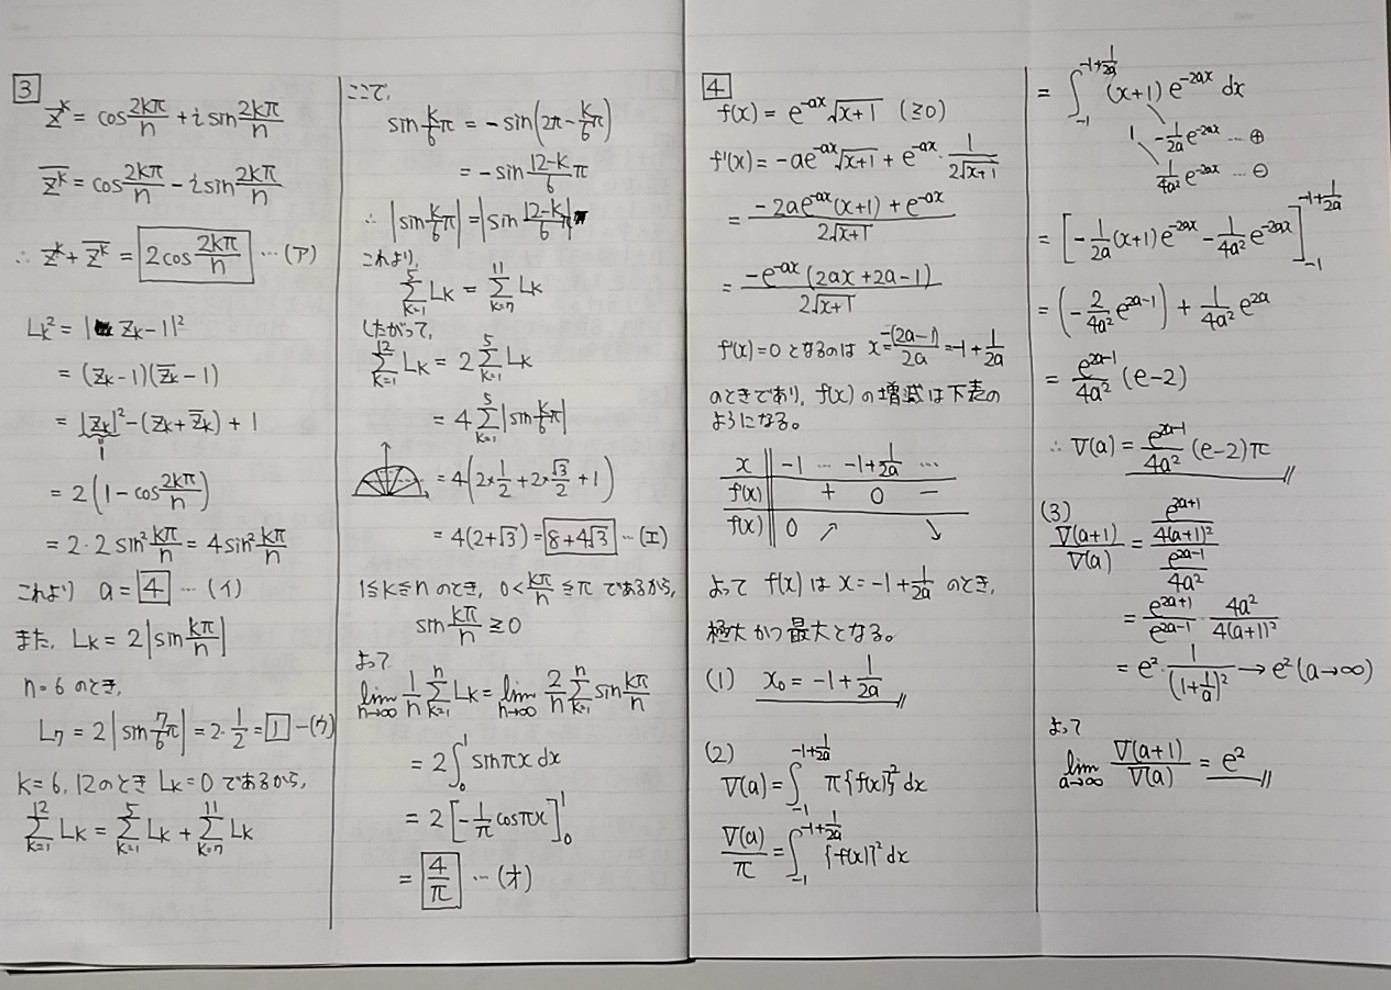 3
z^k = cos 2kπ/n + i sin 2kπ/n
z̅^k̅ = cos 2kπ/n - i sin 2kπ/n
∴ z^k + z̅^k̅ = 2cos 2kπ/n … (ア)
Lk² = |zk - 1|²
= (zk - 1)(z̅k - 1)
= |zk|² - (zk + z̅k) + 1
1
= 2(1 - cos 2kπ/n)
= 2・2 sin² kπ/n = 4 sin² kπ/n
これより a = 4 … (イ)
また, Lk = 2|sin kπ/n|
n = 6 のとき,
L7 = 2|sin 7/6 π| = 2・1/2 = 1 … (ウ)
k = 6, 12 のとき Lk = 0 であるから,
Σ[k=1→12] Lk = Σ[k=1→5] Lk + Σ[k=7→11] Lk
ここで,
sin k/6 π = - sin(2π - k/6 π)
= - sin (12-k)/6 π
∴ |sin k/6 π| = |sin (12-k)/6 π|
これより,
Σ[k=1→5] Lk = Σ[k=7→11] Lk
したがって,
Σ[k=1→12] Lk = 2 Σ[k=1→5] Lk
= 4 Σ[k=1→5] |sin k/6 π|
= 4(2×1/2 + 2×√3/2 + 1)
= 4(2+√3) = 8+4√3 … (エ)
1≦k≦n のとき, 0 < kπ/n ≦ π であるから,
sin kπ/n ≧ 0
よって
lim[n→∞] 1/n Σ[k=1→n] Lk = lim[n→∞] 2/n Σ[k=1→n] sin kπ/n
= 2∫[0→1] sinπx dx
= 2[-1/π cosπx]₀¹
= 4/π … (オ)
4
f(x) = e^-ax √x+1 (≧0)
f'(x) = -ae^-ax √x+1 + e^-ax・1/2√x+1
= (-2ae^-ax(x+1) + e^-ax)/2√x+1
= -e^-ax(2ax+2a-1)/2√x+1
f'(x)=0 となるのは x = -(2a-1)/2a = -1 + 1/2a
のときであり, f(x) の増減は下表の
ようになる。
x -1 … -1+1/2a …
f'(x) + 0 −
f(x) 0 ↗ ↘
よって f(x) は x = -1 + 1/2a のとき,
極大かつ最大となる。
(1) x₀ = -1 + 1/2a
(2)
V(a) = ∫[-1→-1+1/2a] π{f(x)}² dx
V(a)/π = ∫[-1→-1+1/2a] {f(x)}² dx
= ∫[-1→-1+1/2a] (x+1) e^-2ax dx
1 -1/2a e^-2ax … ⊕
1/4a² e^-2ax … ⊖
= [-1/2a (x+1) e^-2ax - 1/4a² e^-2ax][-1→-1+1/2a]
= (-2/4a² e^2a-1) + 1/4a² e^2a
= e^2a-1/4a² (e-2)
∴ V(a) = e^2a-1/4a² (e-2)π
(3)
V(a+1)/V(a) = (e^2a+1/4(a+1)²)/(e^2a-1/4a²)
= e^2a+1/e^2a-1・4a²/4(a+1)²
= e²・1/(1+1/a)² → e² (a→∞)
よって
lim[a→∞] V(a+1)/V(a) = e²